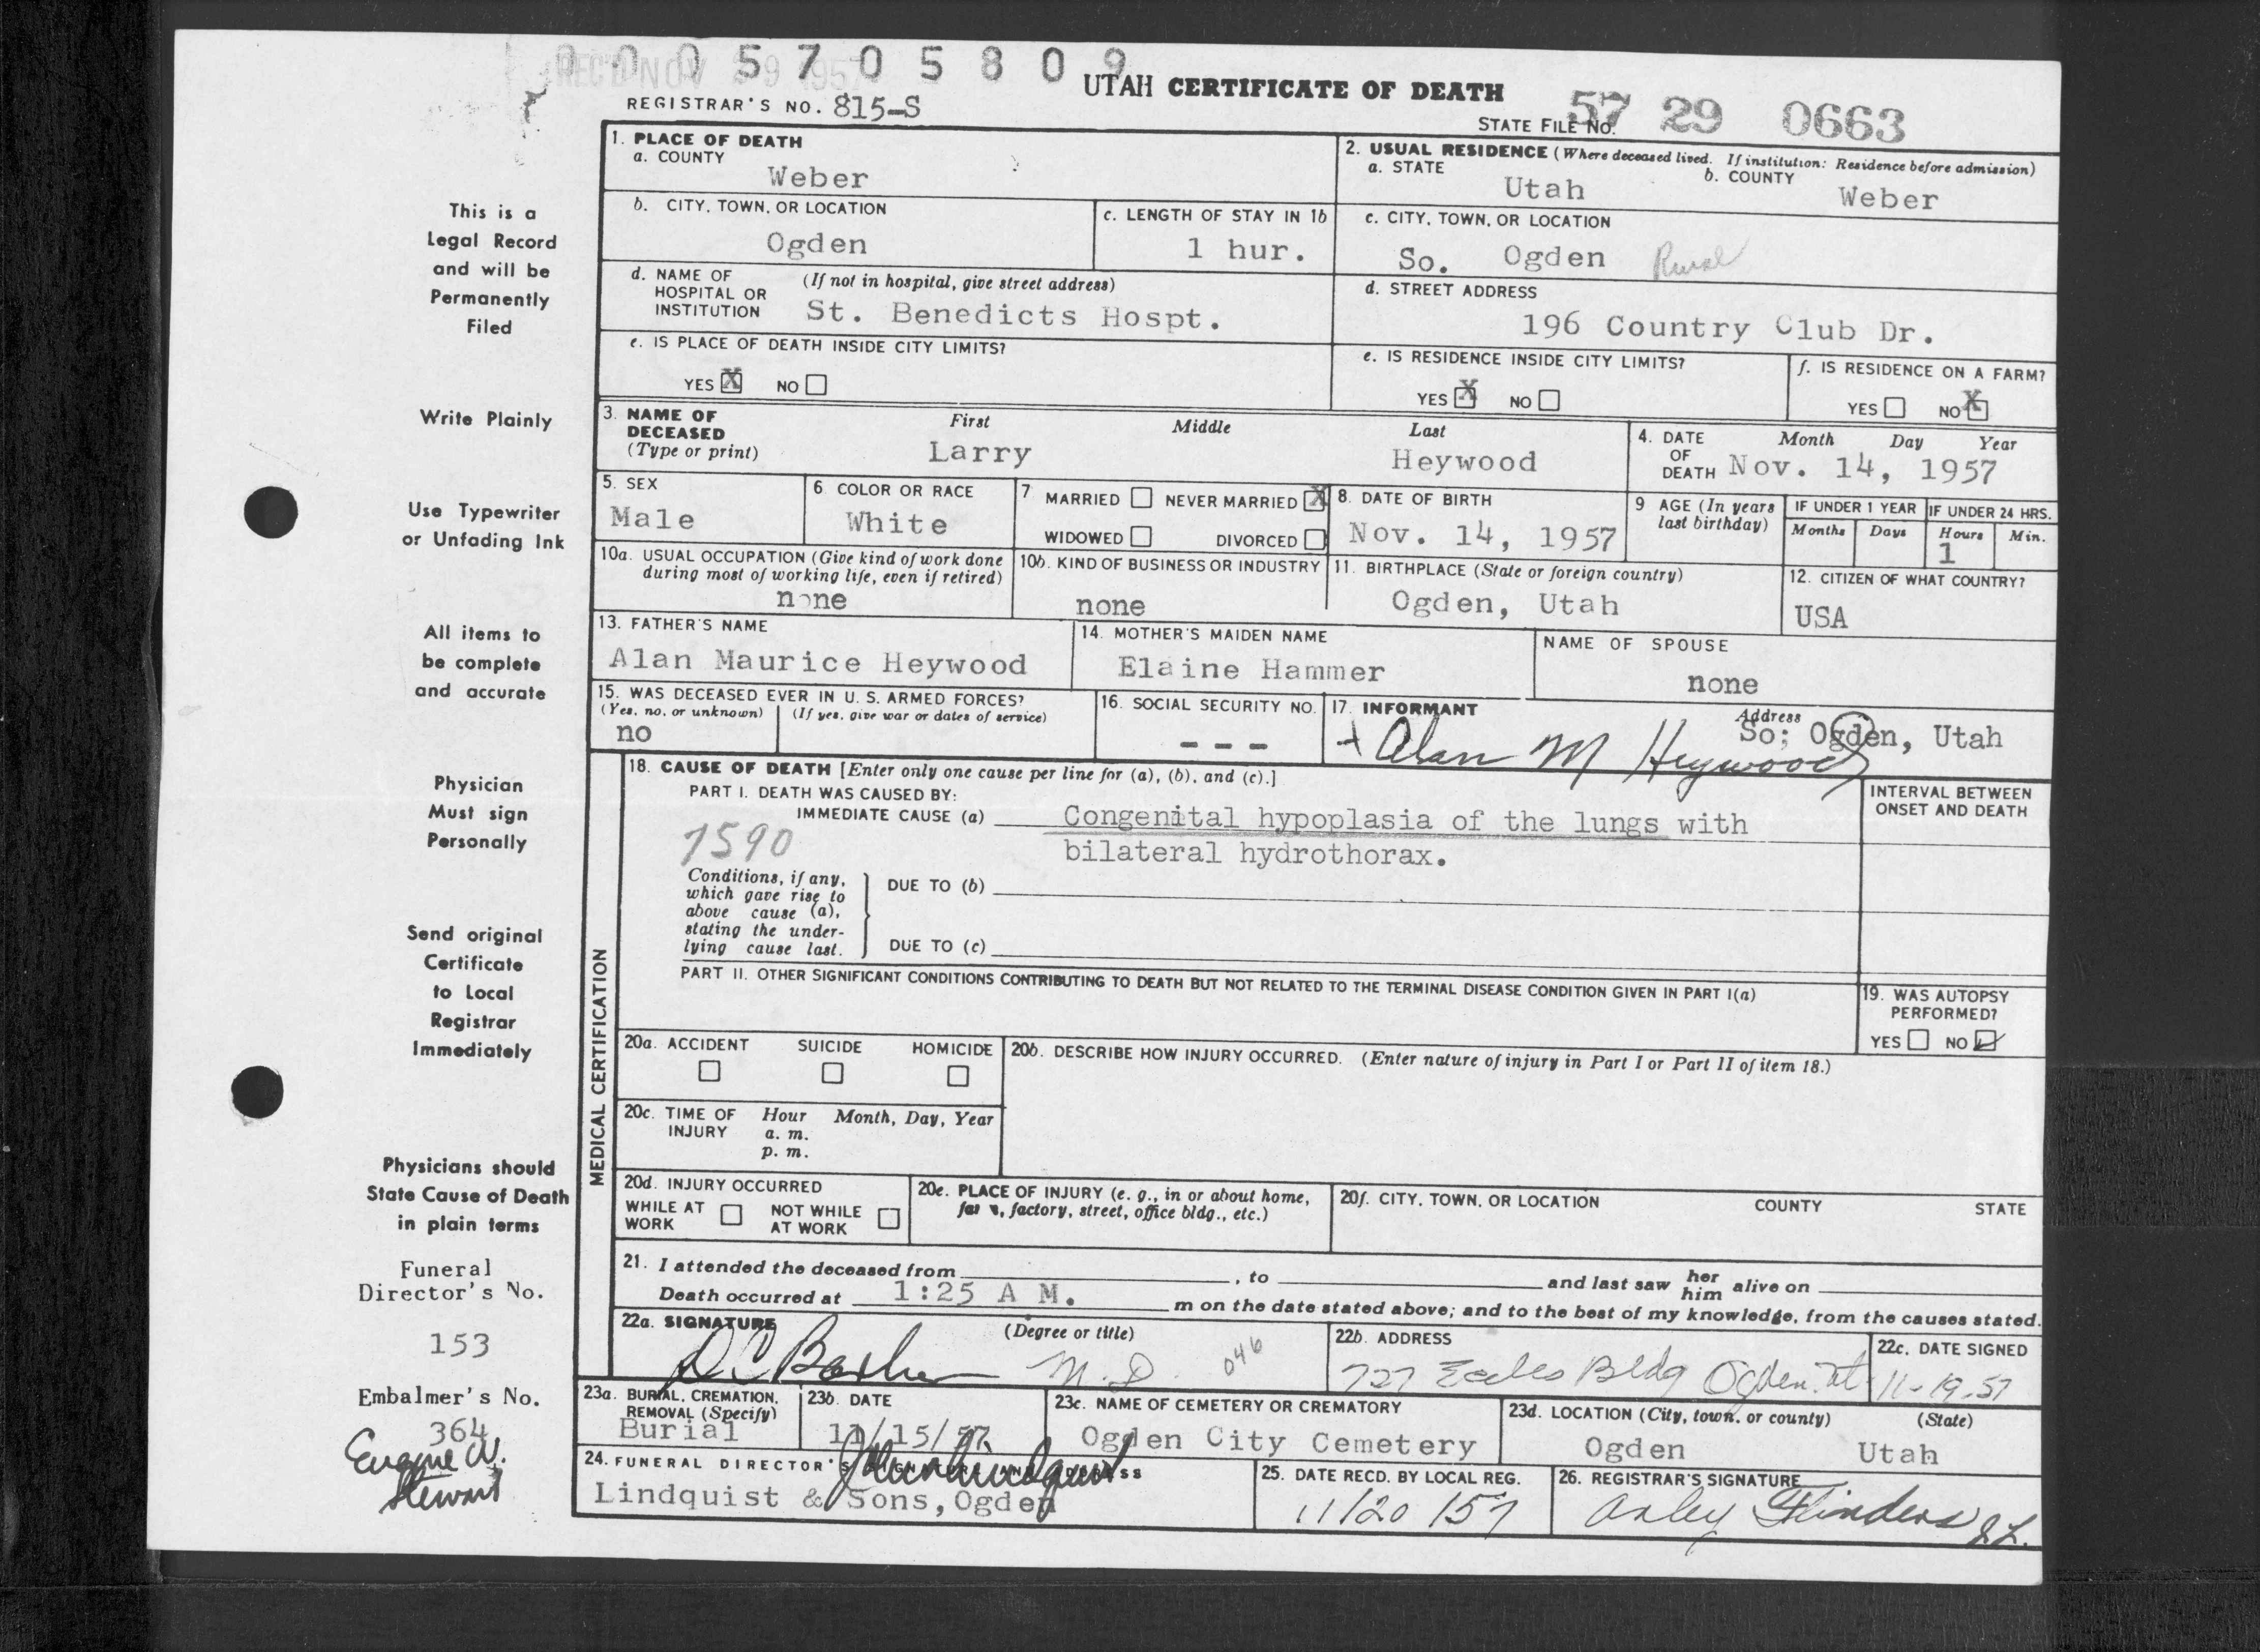 0005705809
REC'D NOV 29 1957
UTAH CERTIFICATE OF DEATH
REGISTRAR'S NO. 815-S
STATE FILE NO. 57 29 0663
This is a
Legal Record
and will be
Permanently
Filed
Write Plainly
Use Typewriter
or Unfading Ink
All items to
be complete
and accurate
Physician
Must sign
Personally
Send original
Certificate
to Local
Registrar
Immediately
Physicians should
State Cause of Death
in plain terms
Funeral
Director's No.
153
Embalmer's No.
364
Eugene W.
Stewart
1. PLACE OF DEATH
a. COUNTY
Weber
2. USUAL RESIDENCE (Where deceased lived. If institution: Residence before admission)
a. STATE Utah b. COUNTY Weber
b. CITY, TOWN, OR LOCATION
Ogden
c. LENGTH OF STAY IN 1b
1 hur.
c. CITY, TOWN, OR LOCATION
So. Ogden Rural
d. NAME OF HOSPITAL OR INSTITUTION (If not in hospital, give street address)
St. Benedicts Hospt.
d. STREET ADDRESS
196 Country Club Dr.
e. IS PLACE OF DEATH INSIDE CITY LIMITS?
YES X NO
e. IS RESIDENCE INSIDE CITY LIMITS?
YES X NO
f. IS RESIDENCE ON A FARM?
YES NO X
3. NAME OF DECEASED (Type or print)
First Middle Last
Larry Heywood
4. DATE OF DEATH Month Day Year
Nov. 14, 1957
5. SEX
Male
6 COLOR OR RACE
White
7 MARRIED NEVER MARRIED X
WIDOWED DIVORCED
8. DATE OF BIRTH
Nov. 14, 1957
9 AGE (In years last birthday)
IF UNDER 1 YEAR
Months Days
IF UNDER 24 HRS.
Hours Min.
1
10a. USUAL OCCUPATION (Give kind of work done during most of working life, even if retired)
none
10b. KIND OF BUSINESS OR INDUSTRY
none
11. BIRTHPLACE (State or foreign country)
Ogden, Utah
12. CITIZEN OF WHAT COUNTRY?
USA
13. FATHER'S NAME
Alan Maurice Heywood
14. MOTHER'S MAIDEN NAME
Elaine Hammer
NAME OF SPOUSE
none
15. WAS DECEASED EVER IN U. S. ARMED FORCES?
(Yes, no, or unknown) (If yes, give war or dates of service)
no
16. SOCIAL SECURITY NO.
---
17. INFORMANT Address
Alan M Heywood So; Ogden, Utah
MEDICAL CERTIFICATION
18. CAUSE OF DEATH [Enter only one cause per line for (a), (b), and (c).]
PART I. DEATH WAS CAUSED BY:
IMMEDIATE CAUSE (a) Congenital hypoplasia of the lungs with
bilateral hydrothorax.
7590
INTERVAL BETWEEN ONSET AND DEATH
Conditions, if any, which gave rise to above cause (a), stating the underlying cause last.
DUE TO (b)
DUE TO (c)
PART II. OTHER SIGNIFICANT CONDITIONS CONTRIBUTING TO DEATH BUT NOT RELATED TO THE TERMINAL DISEASE CONDITION GIVEN IN PART I(a)
19. WAS AUTOPSY PERFORMED?
YES NO ✓
20a. ACCIDENT SUICIDE HOMICIDE
20b. DESCRIBE HOW INJURY OCCURRED. (Enter nature of injury in Part I or Part II of item 18.)
20c. TIME OF INJURY Hour Month, Day, Year
a. m.
p. m.
20d. INJURY OCCURRED
WHILE AT WORK NOT WHILE AT WORK
20e. PLACE OF INJURY (e. g., in or about home, factory, street, office bldg., etc.)
20f. CITY, TOWN, OR LOCATION COUNTY STATE
21. I attended the deceased from , to and last saw her him alive on
Death occurred at 1:25 A M. m on the date stated above; and to the best of my knowledge, from the causes stated.
22a. SIGNATURE (Degree or title)
M. D. 046
22b. ADDRESS
727 Eccles Bldg Ogden, Ut
22c. DATE SIGNED
11-19-57
23a. BURIAL, CREMATION, REMOVAL (Specify)
Burial
23b. DATE
11/15/57
23c. NAME OF CEMETERY OR CREMATORY
Ogden City Cemetery
23d. LOCATION (City, town, or county) (State)
Ogden Utah
24. FUNERAL DIRECTOR'S SIGNATURE AND ADDRESS
Lindquist & Sons, Ogden
25. DATE RECD. BY LOCAL REG.
11/20/57
26. REGISTRAR'S SIGNATURE
Flinders